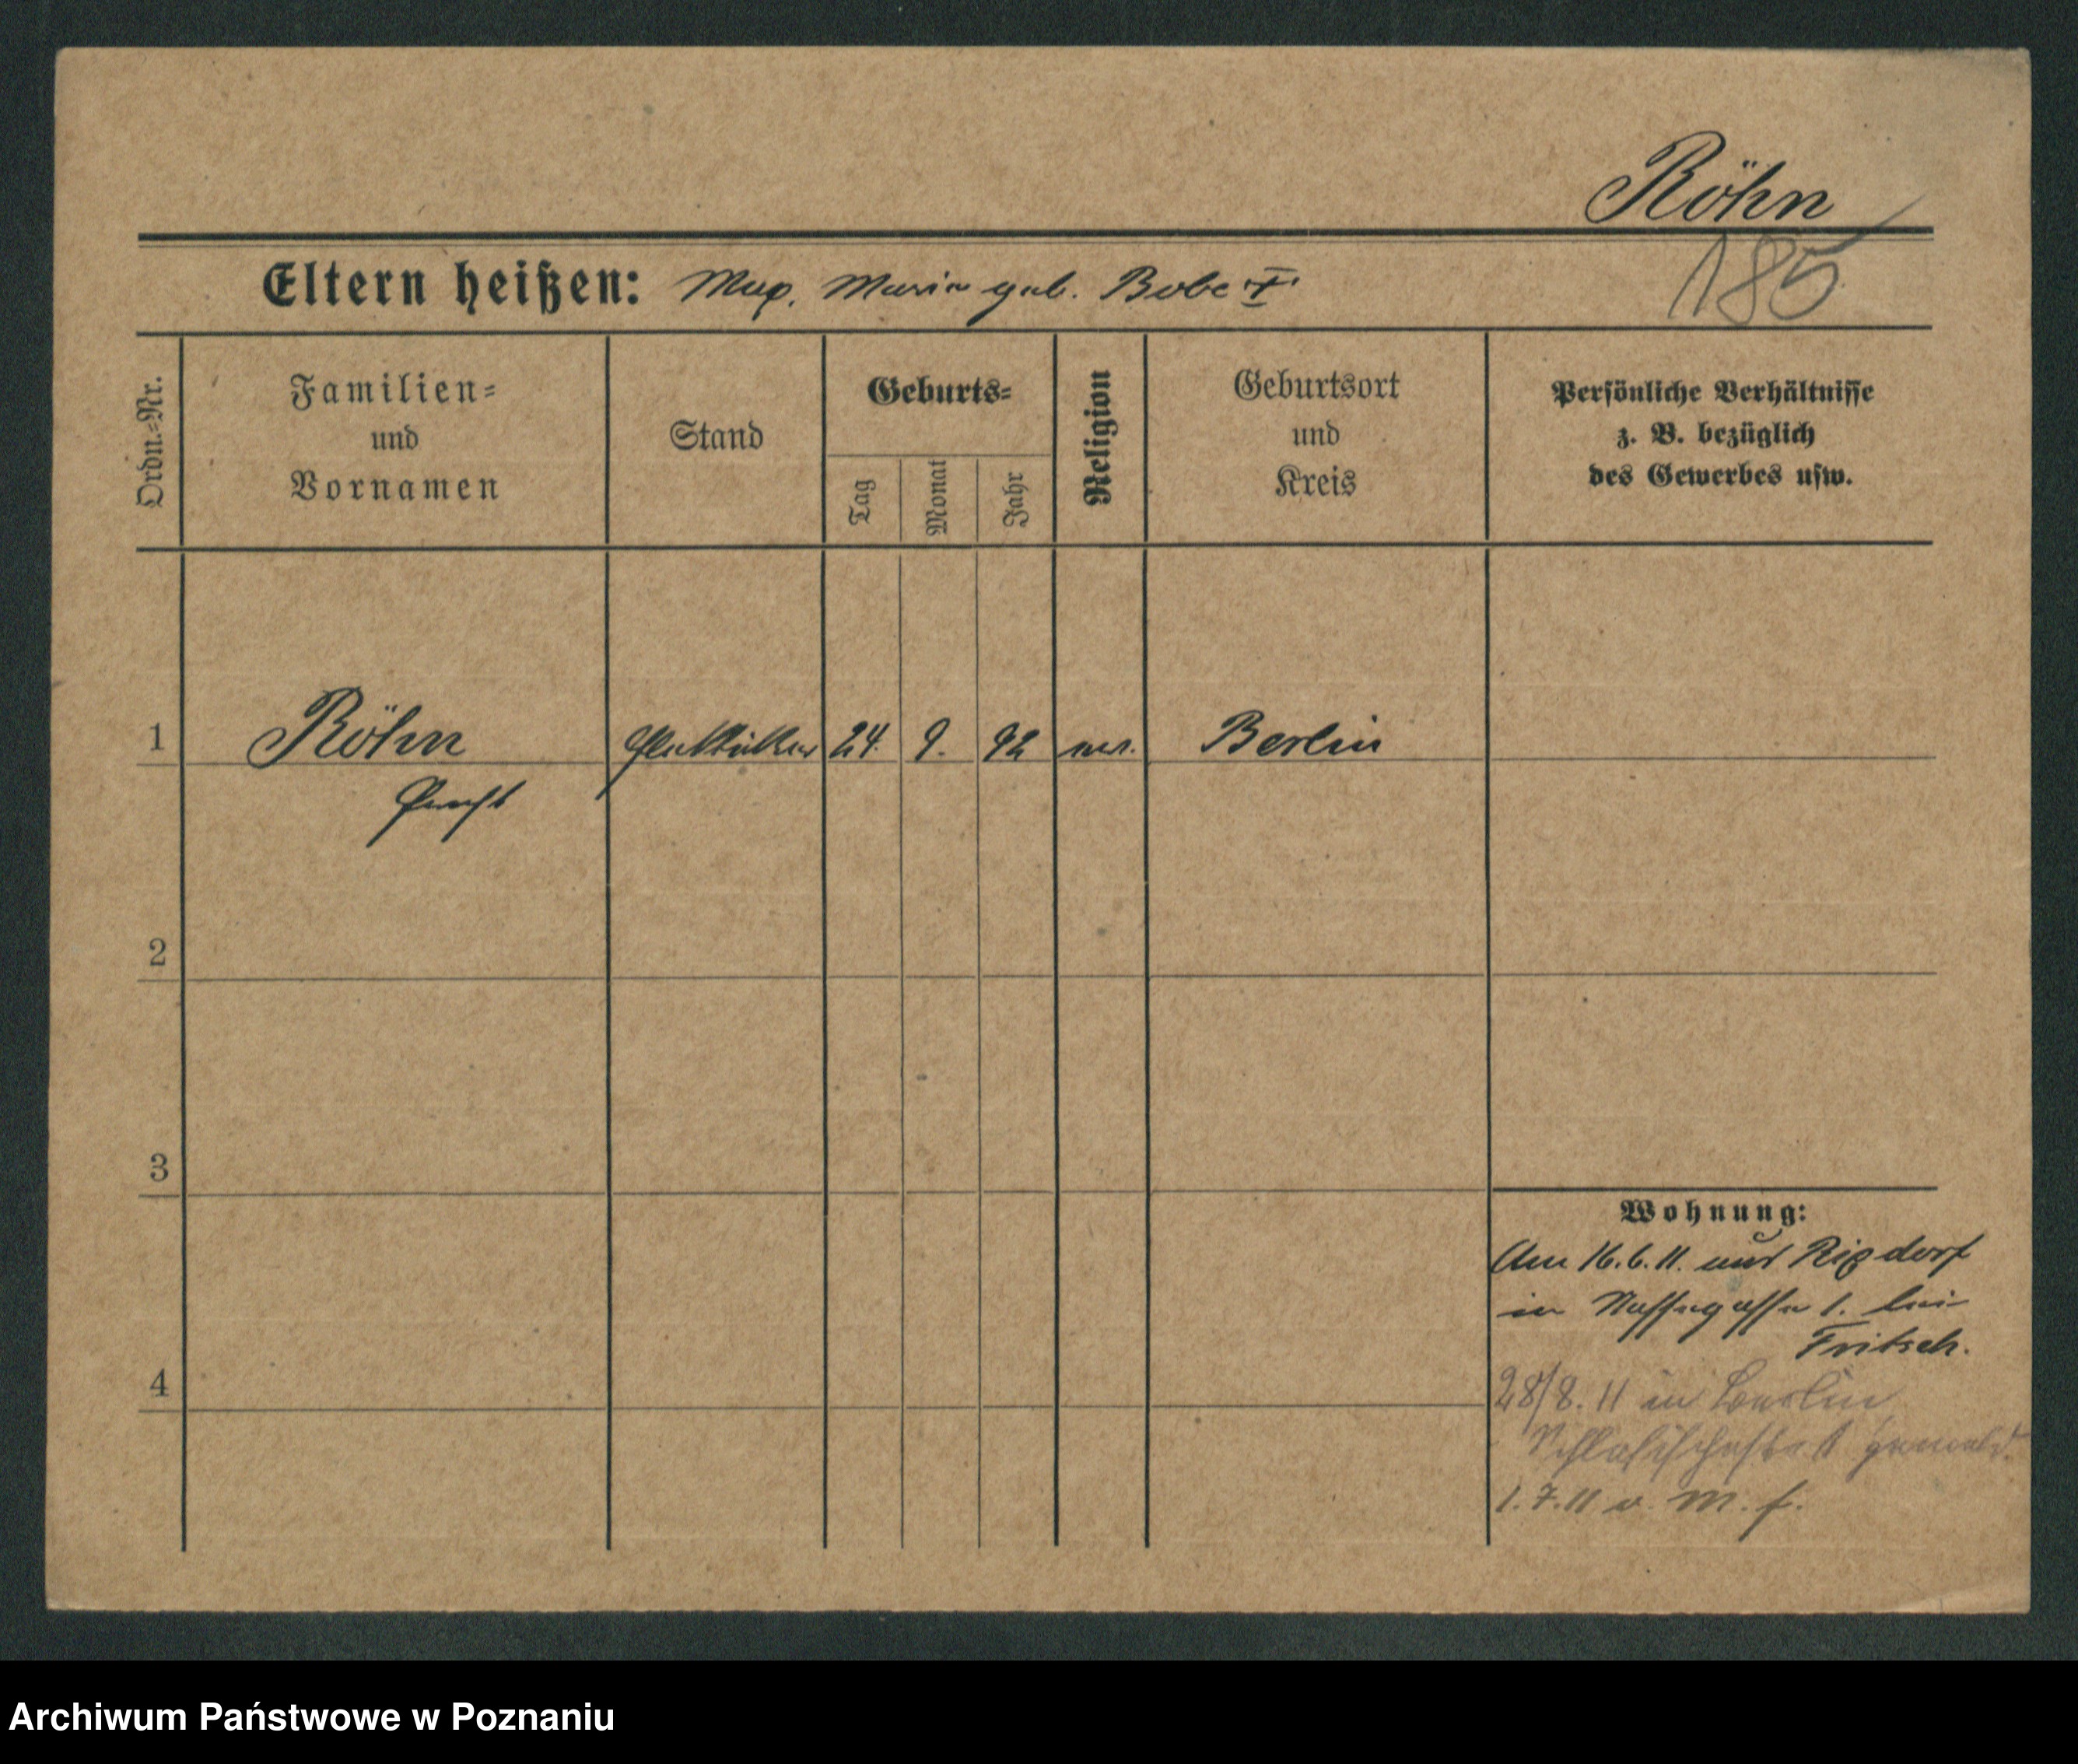 Röhn
185
Eltern heißen: Max. Maria geb. Bobe
Ordn.=Nr.
Familien=
und
Vornamen
Stand
Geburts=
Tag
Monat
Jahr
Religion
Geburtsort
und
Kreis
Persönliche Verhältnisse
z. B. bezüglich
des Gewerbes usw.
1 Röhn 24. 9. 92 Berlin
2
3
Wohnung:
Am 16.6.11. aus Rixdorf
in Nassegasse 1. bei
Fritsch.
4
28/8. 11 in Berlin
1.7.11 v. M. f.
Archiwum Państwowe w Poznaniu